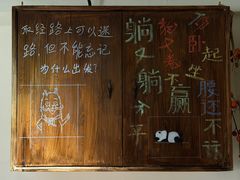 取经路上可以迷
路,但不能忘记
为什么出发?
躺又躺不平
卷又卷不赢
仰卧起坐
腰还不行